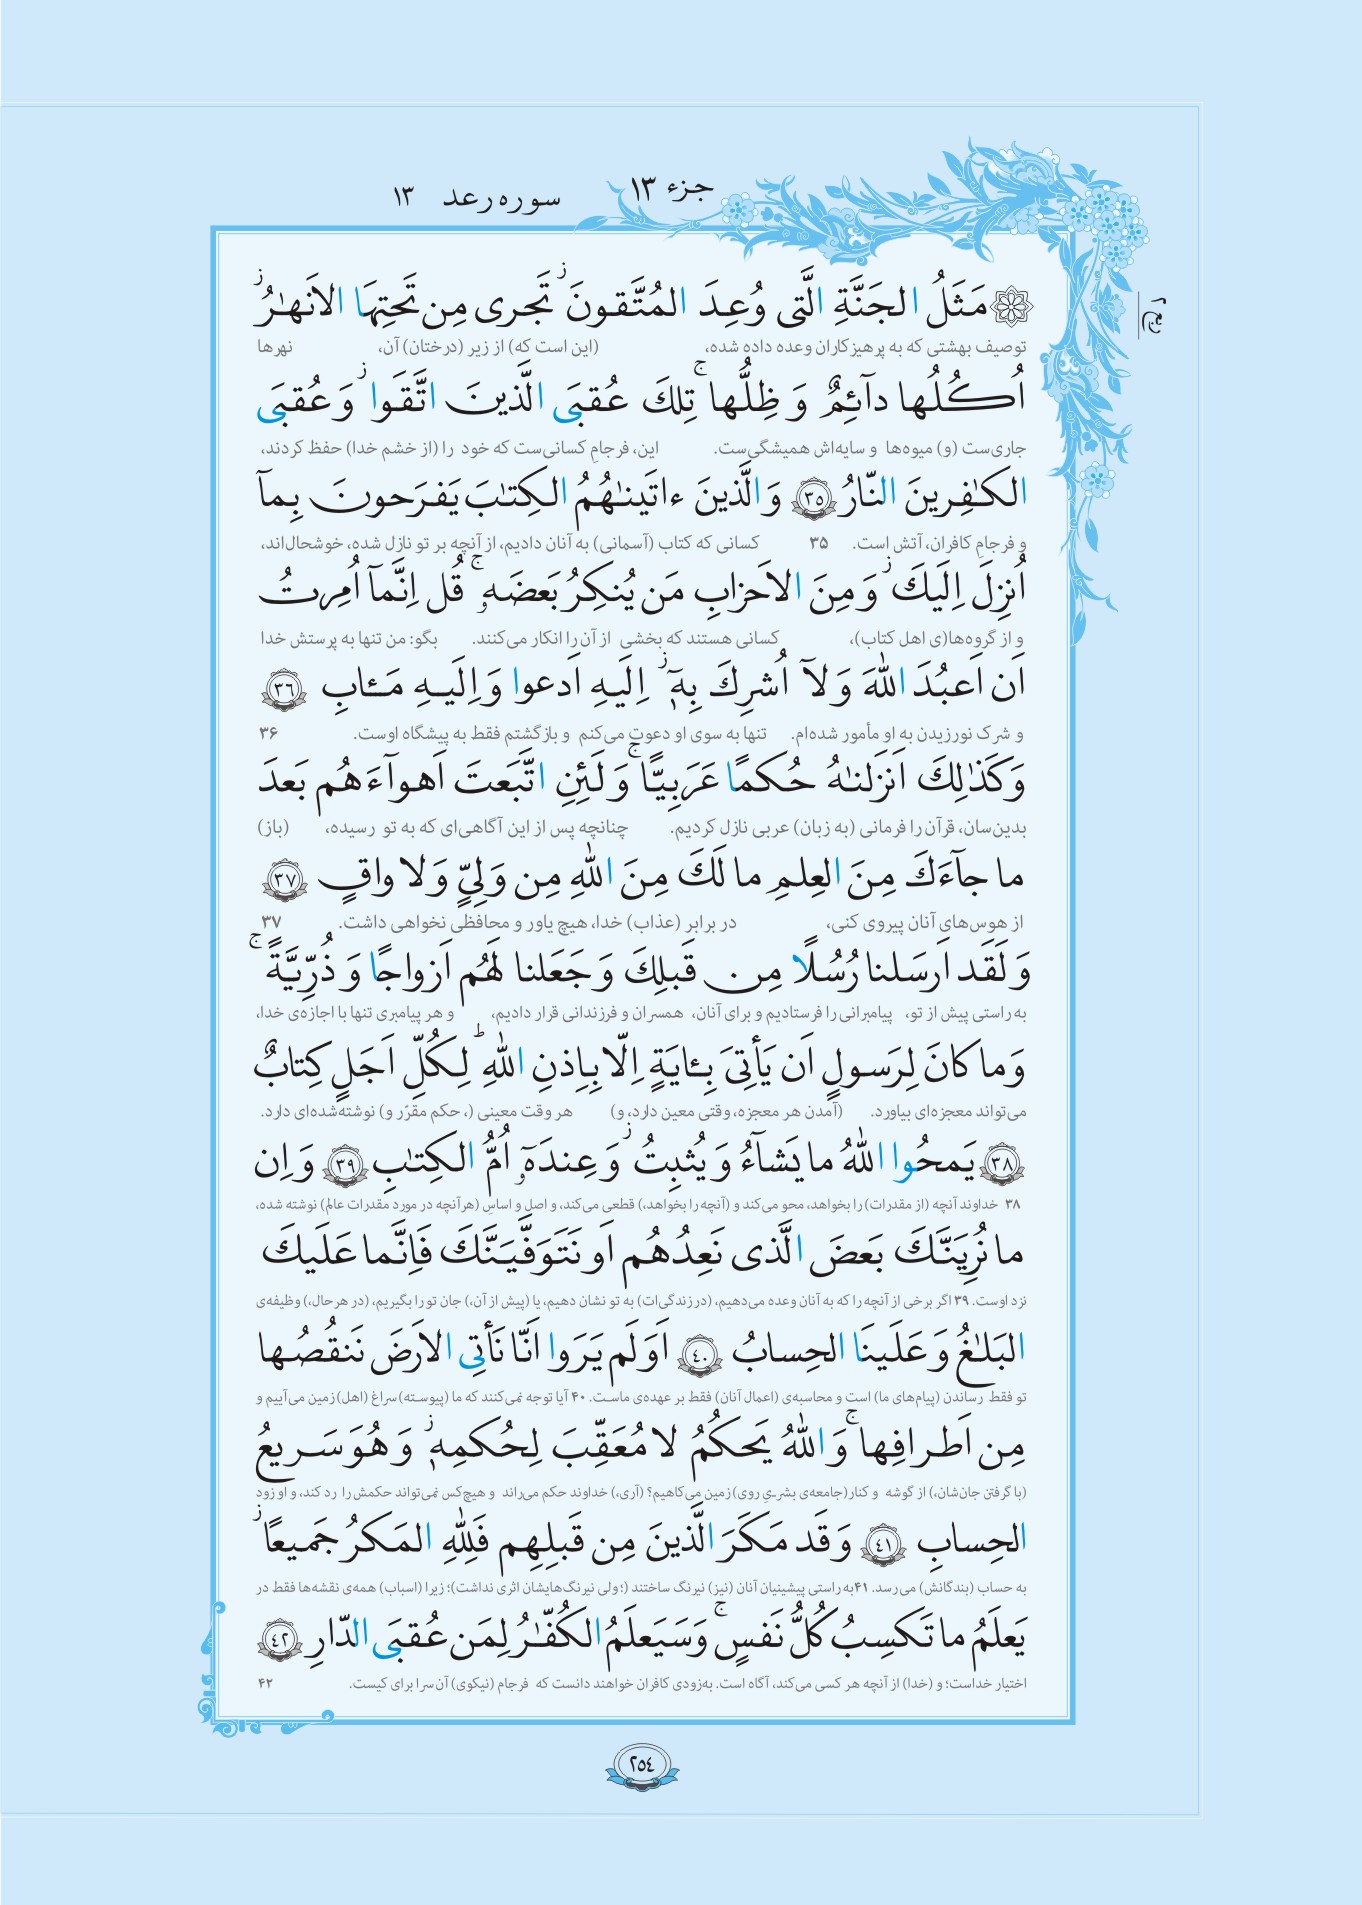 جزء ١٣
سوره رعد ١٣
ربع ٢
مَثَلُ الجَنَّةِ الَّتى وُعِدَ المُتَّقونَ ۖ تَجرى مِن تَحتِهَا الاَنهٰرُ ۖ
توصیف بهشتی که به پرهیزکاران وعده داده شده، (این است که) از زیر (درختان) آن، نهرها
اُكُلُها دآئِمٌ وَ ظِلُّها ۚ تِلكَ عُقبَى الَّذينَ اتَّقَوا ۖ وَ عُقبَى
جاری‌ست (و) میوه‌ها و سایه‌اش همیشگی‌ست. این، فرجامِ کسانی‌ست که خود را (از خشم خدا) حفظ کردند،
الكٰفِرينَ النّارُ ٣٥ وَالَّذينَ ءاتَينٰهُمُ الكِتٰبَ يَفرَحونَ بِمآ
و فرجامِ کافران، آتش است. ۳۵ کسانی که کتاب (آسمانی) به آنان دادیم، از آنچه بر تو نازل شده، خوشحال‌اند،
اُنزِلَ اِلَيكَ ۖ وَ مِنَ الاَحزابِ مَن يُنكِرُ بَعضَهۥ ۚ قُل اِنَّمآ اُمِرتُ
و از گروه‌ها(ی اهل کتاب)، کسانی هستند که بخشی از آن را انکار می‌کنند. بگو: من تنها به پرستش خدا
اَن اَعبُدَ اللّٰهَ وَلآ اُشرِكَ بِهٖٓ ۚ اِلَيهِ اَدعوا وَ اِلَيهِ مَـٔابِ ٣٦
و شرک نورزیدن به او مأمور شده‌ام. تنها به سوی او دعوت می‌کنم و بازگشتم فقط به پیشگاه اوست. ۳۶
وَكَذٰلِكَ اَنزَلنٰهُ حُكمًا عَرَبِيًّا ۚ وَ لَئِنِ اتَّبَعتَ اَهوآءَهُم بَعدَ
بدین‌سان، قرآن را فرمانی (به زبان) عربی نازل کردیم. چنانچه پس از این آگاهی‌ای که به تو رسیده، (باز)
ما جآءَكَ مِنَ العِلمِ ما لَكَ مِنَ اللّٰهِ مِن وَلِىٍّ وَلا واقٍ ٣٧
از هوس‌های آنان پیروی کنی، در برابر (عذاب) خدا، هیچ یاور و محافظی نخواهی داشت. ۳۷
وَ لَقَد اَرسَلنا رُسُلًا مِن قَبلِكَ وَ جَعَلنا لَهُم اَزواجًا وَ ذُرِّيَّةً ۚ
به راستی پیش از تو، پیامبرانی را فرستادیم و برای آنان، همسران و فرزندانی قرار دادیم، و هر پیامبری تنها با اجازه‌ی خدا،
وَما كانَ لِرَسولٍ اَن يَأتِىَ بِـٔايَةٍ اِلّا بِاِذنِ اللّٰهِ ۗ لِكُلِّ اَجَلٍ كِتابٌ
می‌تواند معجزه‌ای بیاورد. (آمدن هر معجزه، وقتی معین دارد، و) هر وقت معینی (، حکم مقرّر و) نوشته‌شده‌ای دارد.
٣٨ يَمحُوا اللّٰهُ ما يَشآءُ وَ يُثبِتُ ۖ وَ عِندَهۥٓ اُمُّ الكِتٰبِ ٣٩ وَ اِن
۳۸ خداوند آنچه (از مقدرات) را بخواهد، محو می‌کند و (آنچه را بخواهد،) قطعی می‌کند، و اصل و اساسِ (هرآنچه در مورد مقدرات عالم) نوشته شده،
ما نُرِيَنَّكَ بَعضَ الَّذى نَعِدُهُم اَو نَتَوَفَّيَنَّكَ فَاِنَّما عَلَيكَ
نزد اوست. ۳۹ اگر برخی از آنچه را که به آنان وعده می‌دهیم، (در زندگی‌ات) به تو نشان دهیم، یا (پیش از آن،) جان تو را بگیریم، (در هرحال،) وظیفه‌ی
البَلٰغُ وَ عَلَينَا الحِسابُ ٤٠ اَوَلَم يَرَوا اَنّا نَأتِى الاَرضَ نَنقُصُها
تو فقط رساندن (پیام‌های ما) است و محاسبه‌ی (اعمال آنان) فقط بر عهده‌ی ماست. ۴۰ آیا توجه نمی‌کنند که ما (پیوسته) سراغ (اهل) زمین می‌آییم و
مِن اَطرافِها ۚ وَ اللّٰهُ يَحكُمُ لا مُعَقِّبَ لِحُكمِهٖ ۖ وَ هُوَ سَريعُ
(با گرفتن جان‌شان،) از گوشه و کنار (جامعه‌ی بشریِ روی) زمین می‌کاهیم؟ (آری،) خداوند حکم می‌راند و هیچ‌کس نمی‌تواند حکمش را رد کند، و او زود
الحِسابِ ٤١ وَ قَد مَكَرَ الَّذينَ مِن قَبلِهِم فَلِلّٰهِ المَكرُ جَميعًا ۖ
به حساب (بندگانش) می‌رسد. ۴۱ به راستی پیشینیان آنان (نیز) نیرنگ ساختند (؛ ولی نیرنگ‌هایشان اثری نداشت)؛ زیرا (اسباب) همه‌ی نقشه‌ها فقط در
يَعلَمُ ما تَكسِبُ كُلُّ نَفسٍ ۚ وَ سَيَعلَمُ الكُفّٰرُ لِمَن عُقبَى الدّارِ ٤٢
اختیار خداست؛ و (خدا) از آنچه هر کسی می‌کند، آگاه است. به‌زودی کافران خواهند دانست که فرجام (نیکوی) آن سرا برای کیست. ۴۲
٢٥٤